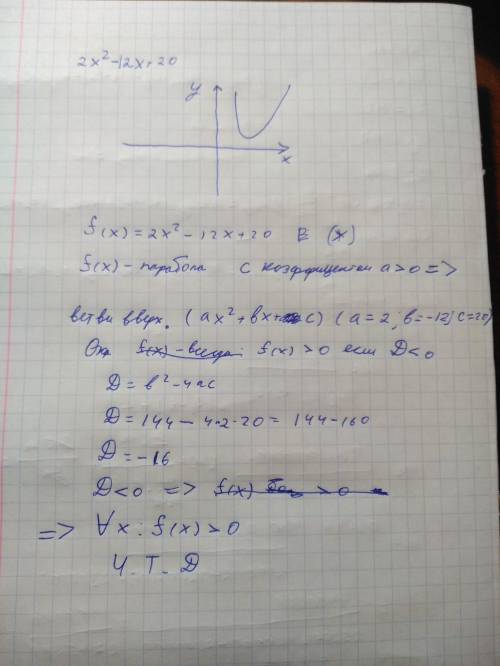 2x²-12x+20
y
x
f(x)=2x²-12x+20 (x)
f(x)-парабола с коэффициентом a>0 =>
ветви вверх. (ax²+bx+c) (a=2; b=-12; c=20)
f(x)>0 если D<0
D=b²-4ac
D=144-4·2·20=144-160
D=-16
D<0 => f(x) >0
=> ∀x: f(x)>0
Ч.Т.Д